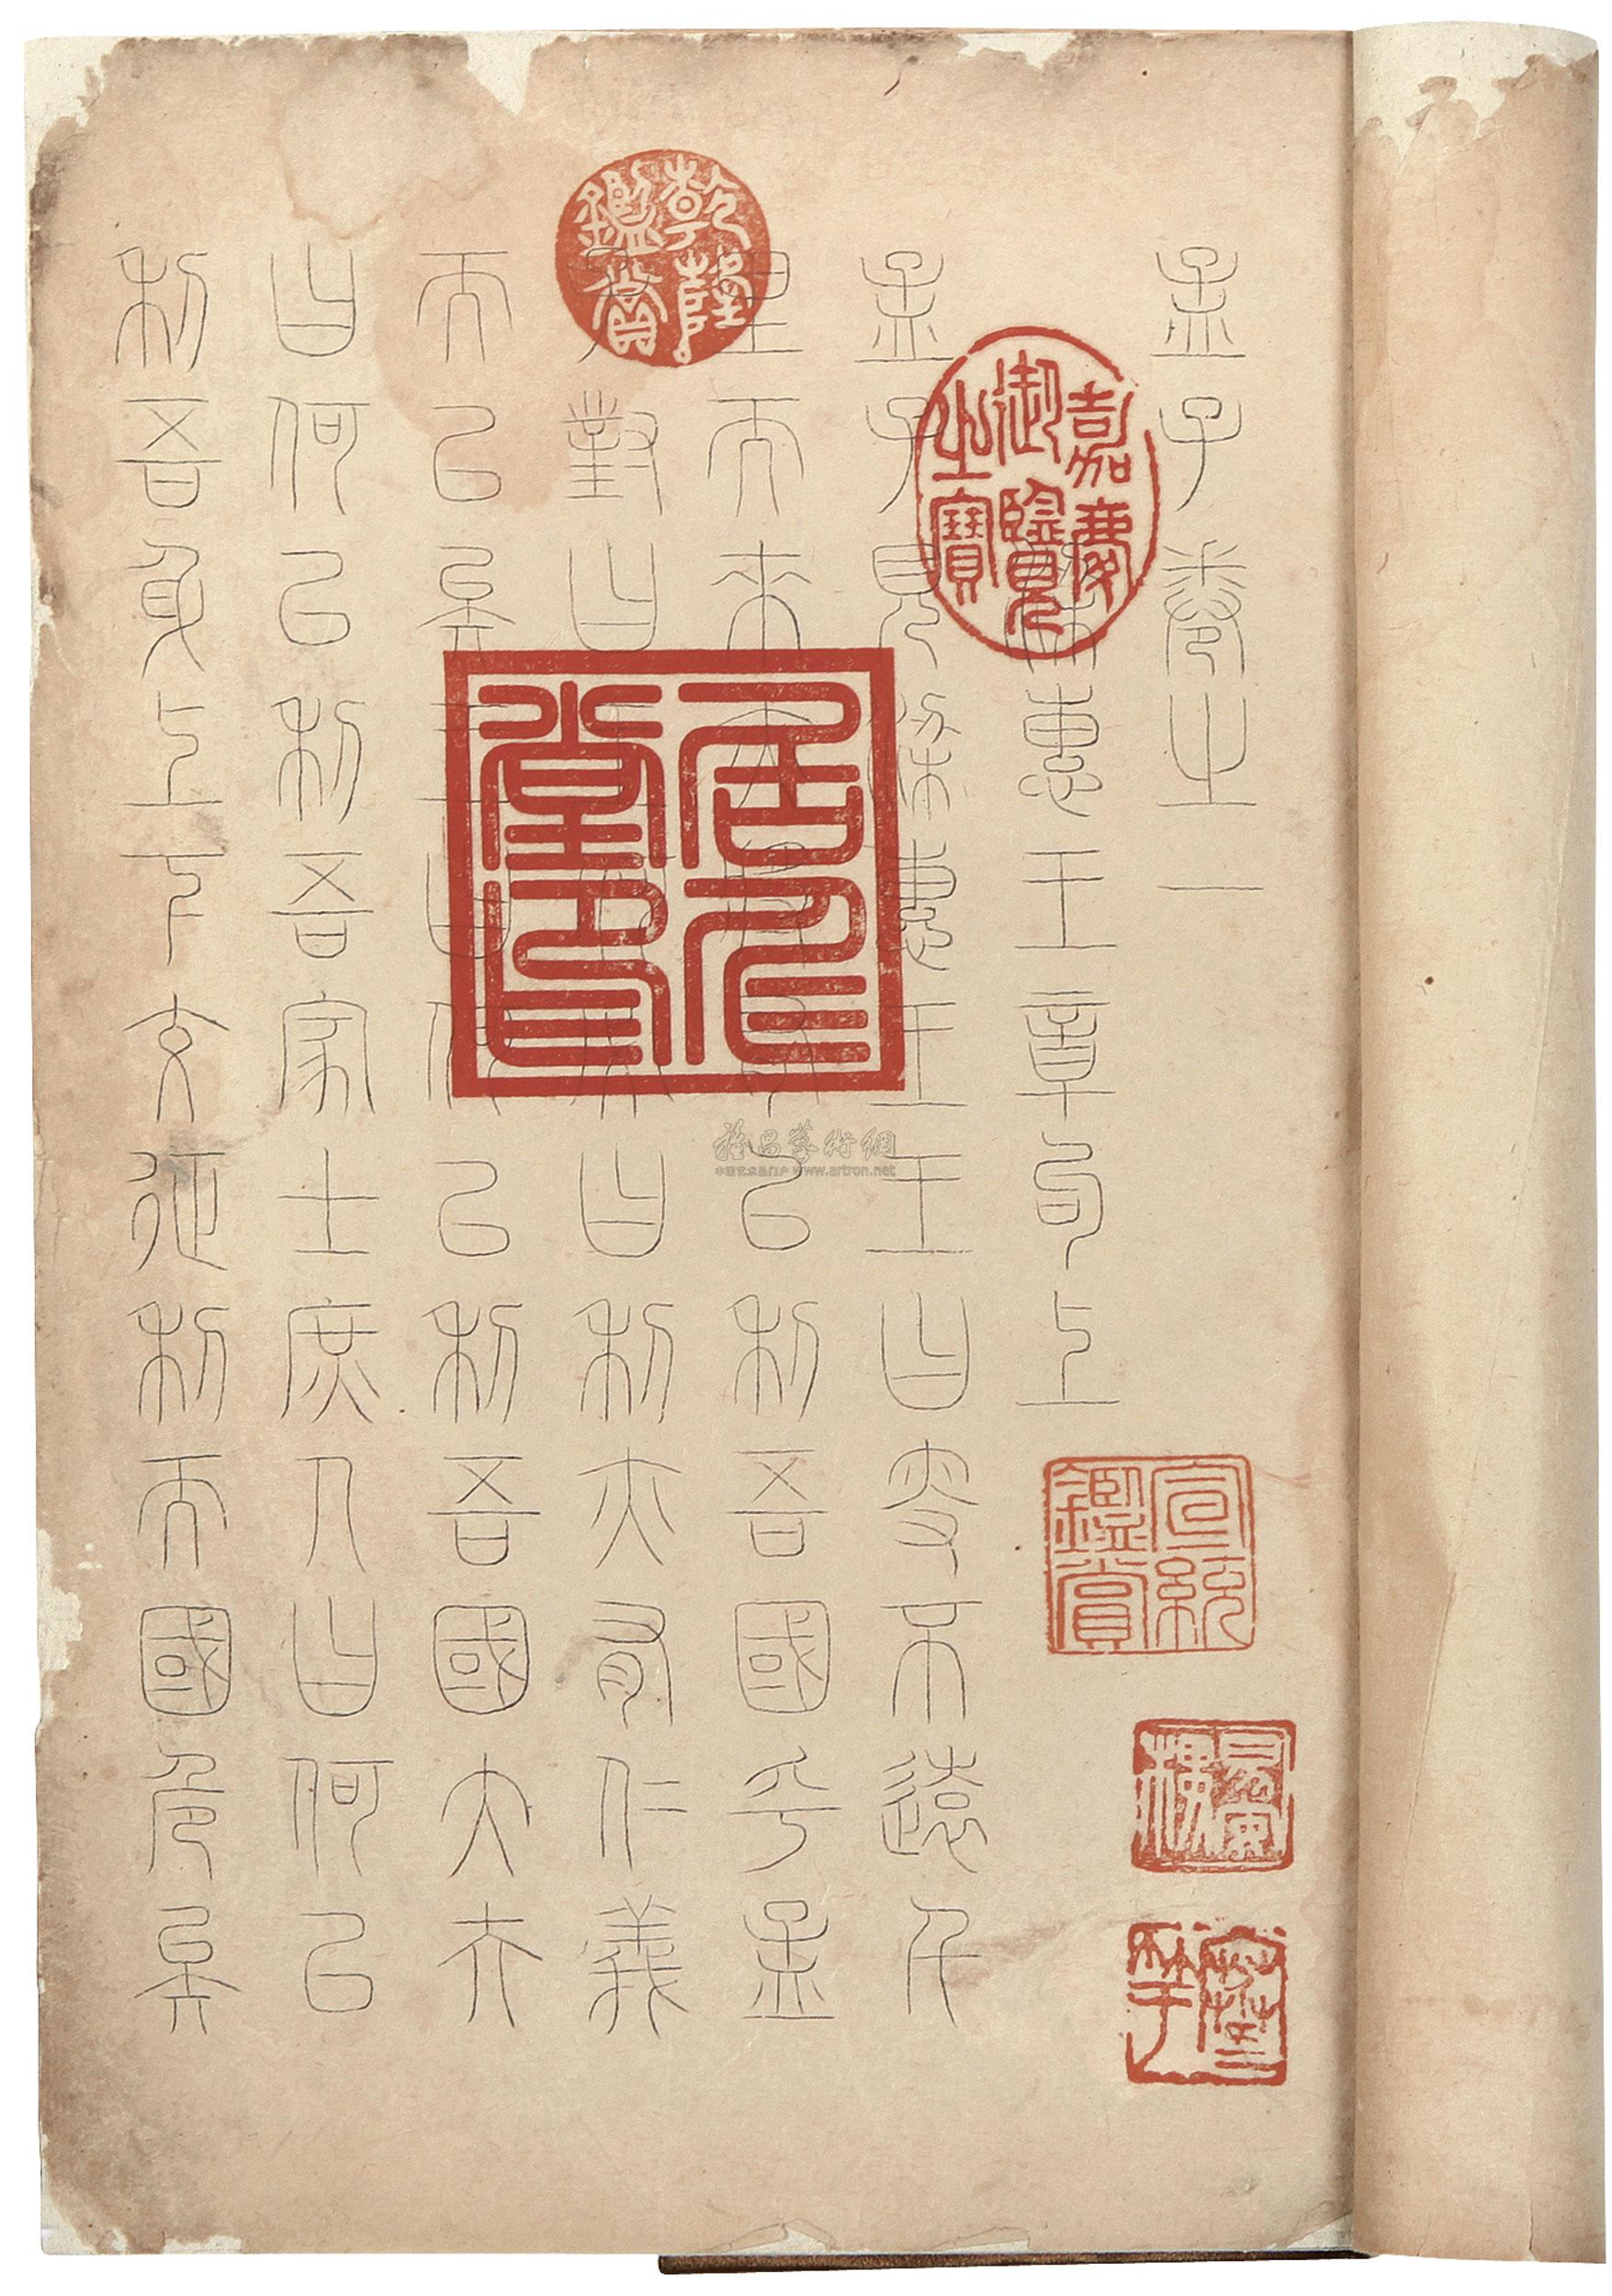 孟子卷之一
梁惠王章句上
孟子見梁惠王王曰叟不遠千
里而來亦將有以利吾國乎孟
子對曰王何必曰利亦有仁義
而已矣王曰何以利吾國大夫
曰何以利吾家士庶人曰何以
利吾身上下交征利而國危矣
乾隆鑑賞
嘉慶御覽之寶
宣統鑑賞
雅昌藝術網
中国艺术品门户 www.artron.net